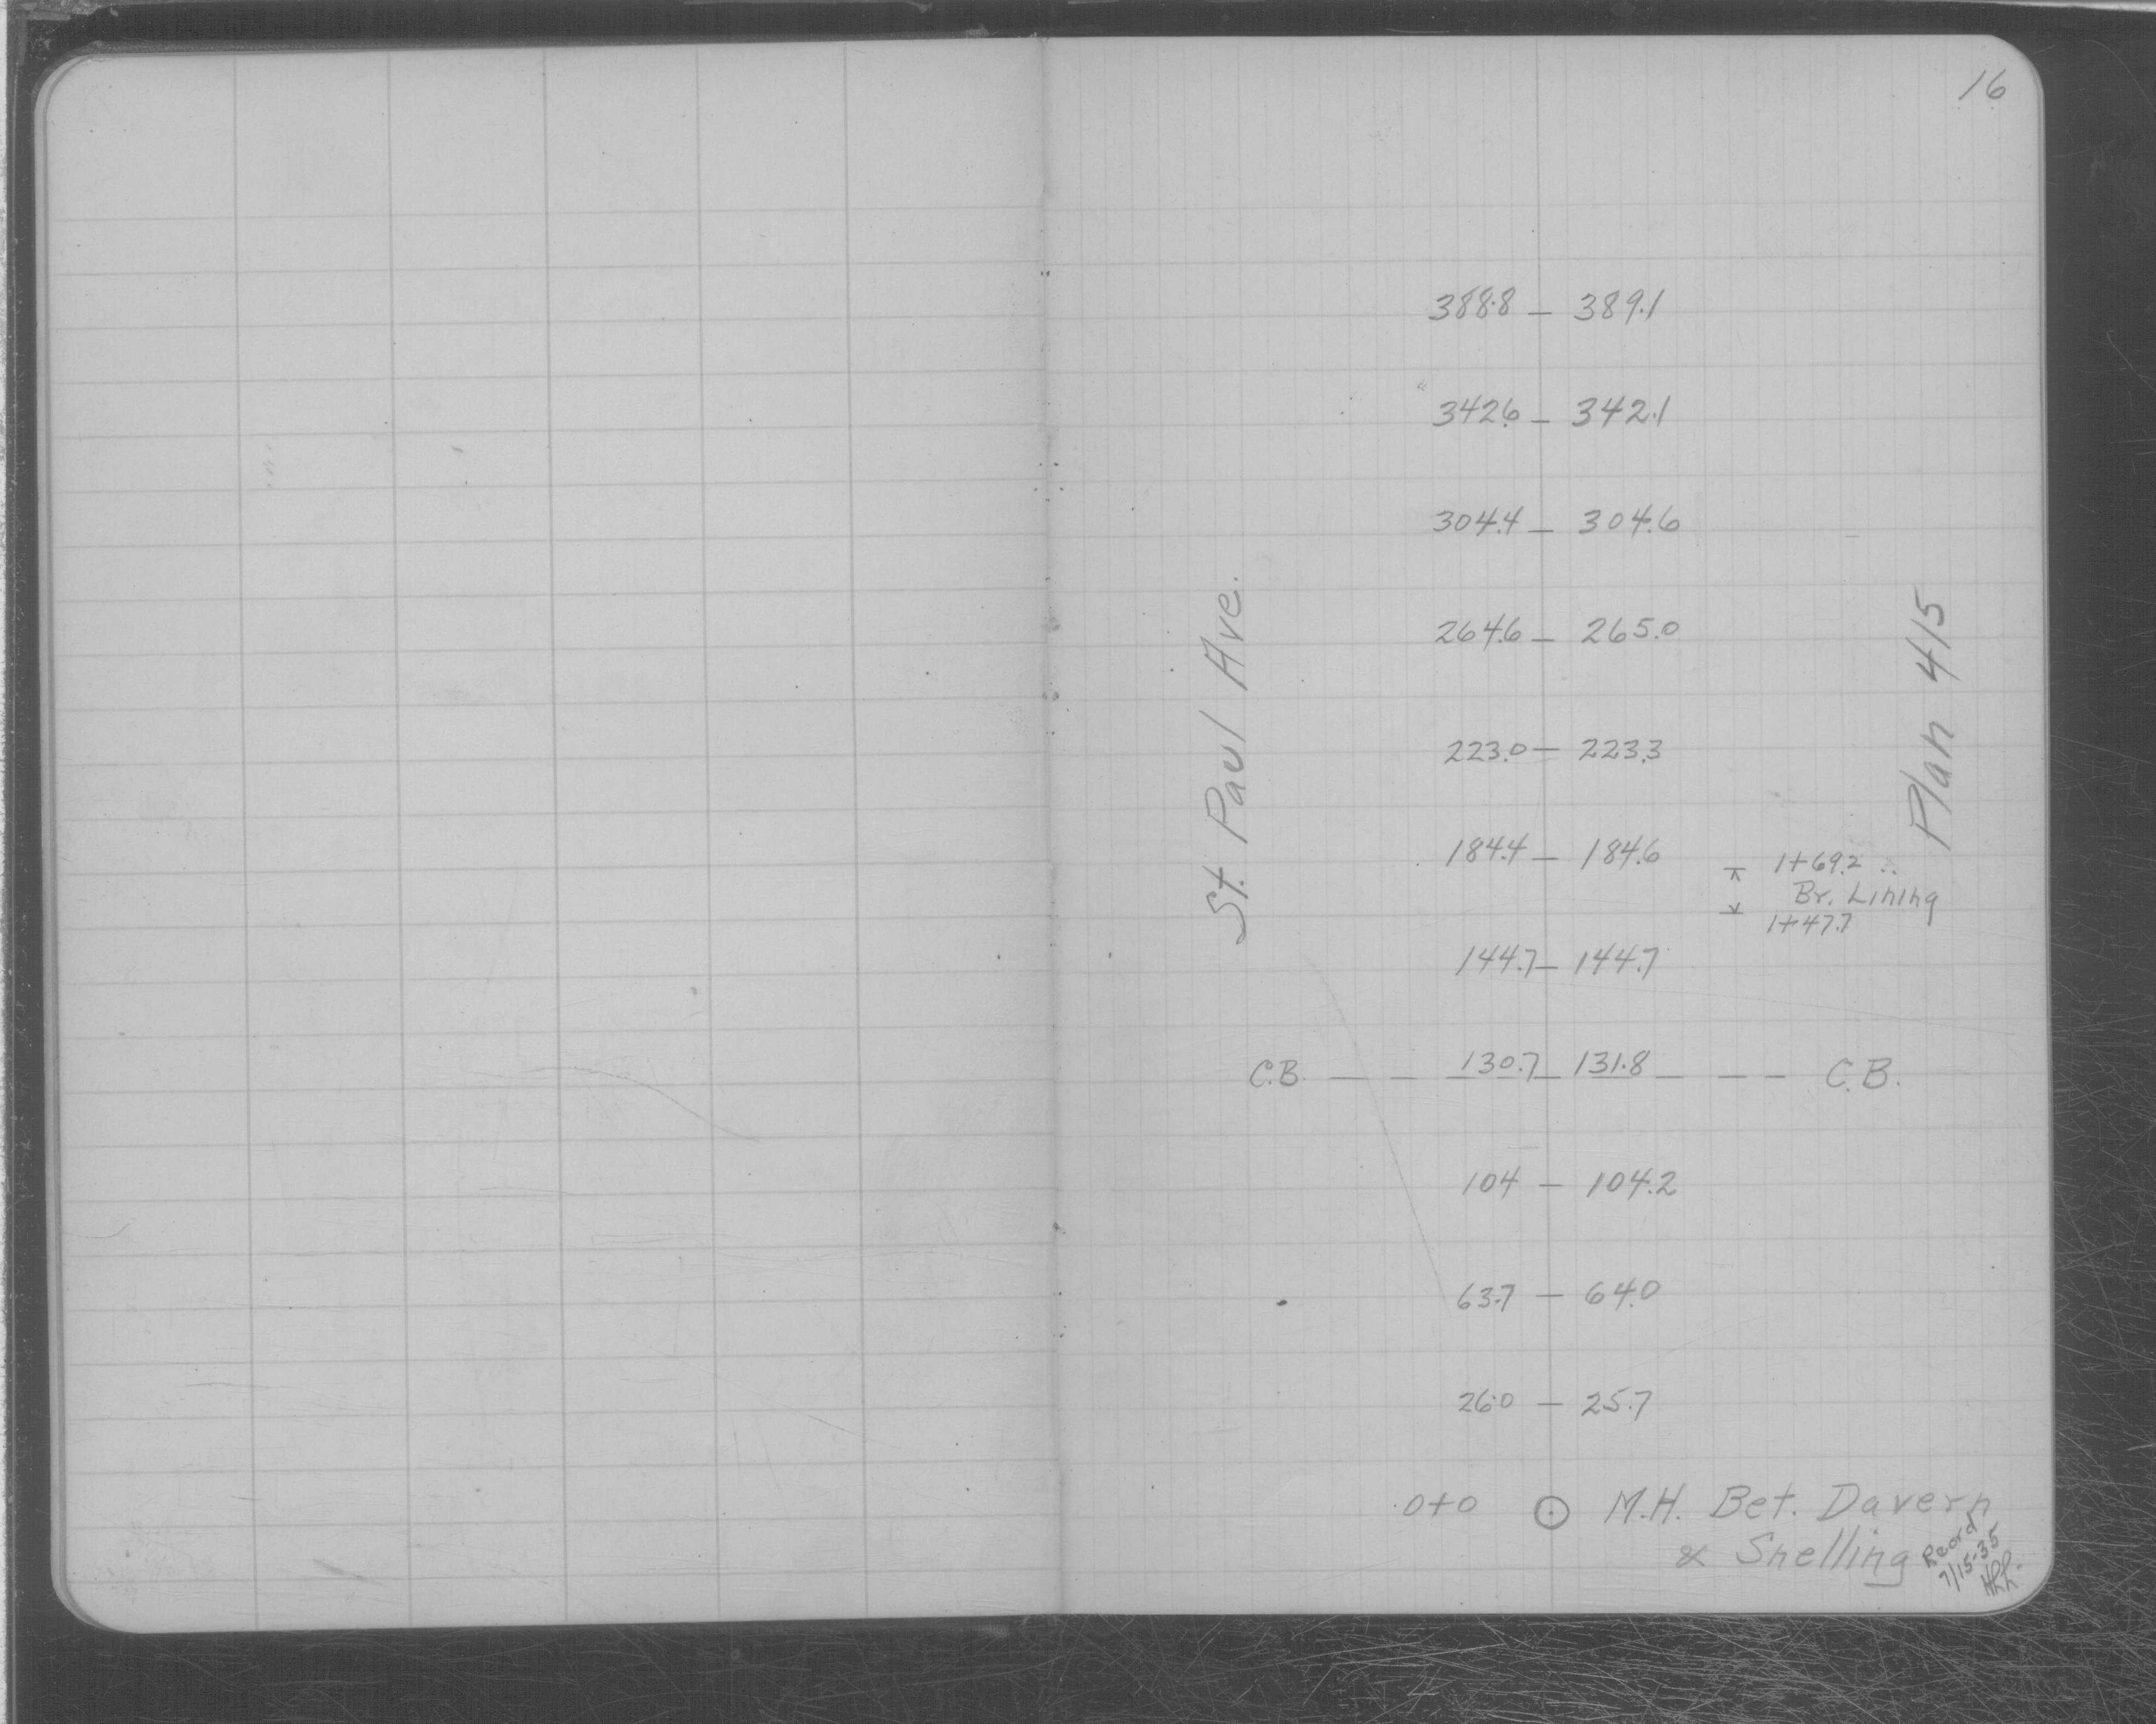 16
388.8 — 389.1
342.6 — 342.1
304.4 — 304.6
264.6 — 265.0
223.0 — 223.3
184.4 — 184.6
1+69.2
Br. Lining
1+47.7
144.7 — 144.7
C.B. — — 130.7 — 131.8 — — — C.B.
104 — 104.2
63.7 — 64.0
26.0 — 25.7
0+0 ⊙ M.H. Bet. Davern
& Snelling
St. Paul Ave.
Plan 415
Recrd
7/15-35